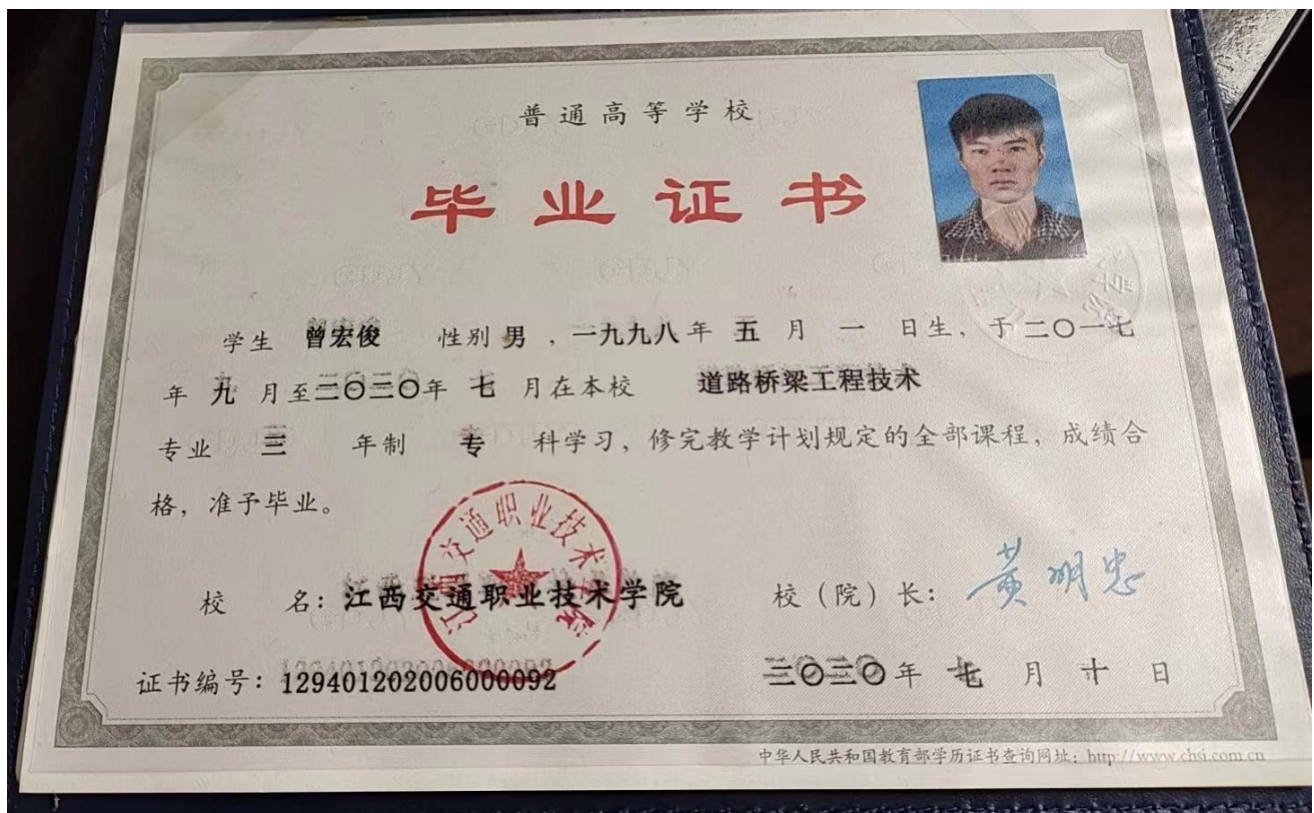 普通高等学校
毕业证书
学生 曾宏俊 性别 男 ，一九九八年 五 月 一 日生，于二〇一七
年 九 月至二〇二〇年 七 月在本校 道路桥梁工程技术
专业 三 年制 专 科学习，修完教学计划规定的全部课程，成绩合
格，准予毕业。
江西交通职业技术学院
校 名：江西交通职业技术学院 校（院）长：黄明忠
证书编号：129401202006000092 二〇二〇年 七 月 十 日
中华人民共和国教育部学历证书查询网址：http://www.chsi.com.cn